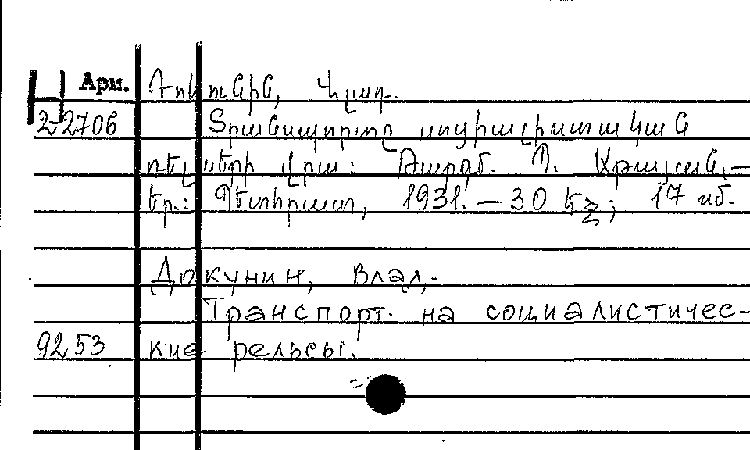 Арм. Դոկունին, Վլադ.
II 22706 Տրանսպորտը սոցիալիստական
ռելսերի վրա: Թարգմ. Պ. Աբրահամ.—
Եր.: Պետհրատ, 1931.—30 եջ; 17 սմ.
Докунин, Влад.
Транспорт на социалистичес-
9253 кие рельсы.